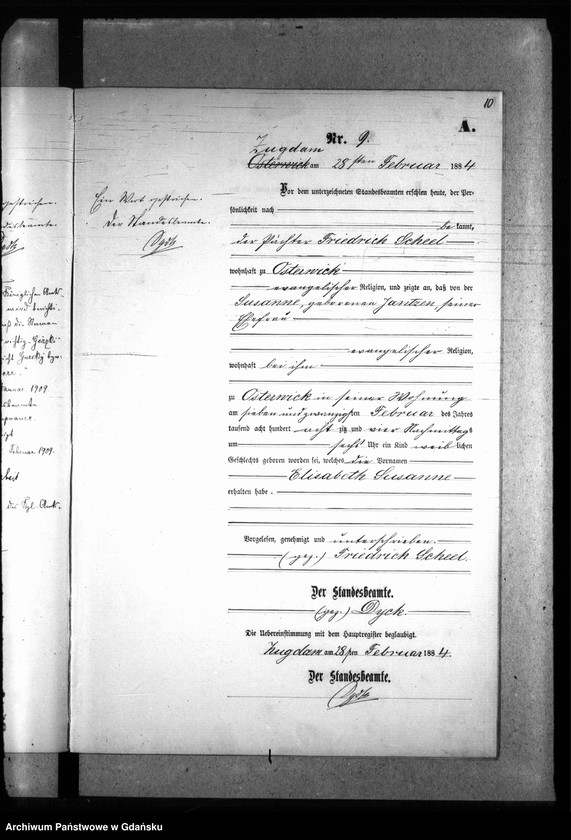 10
A.
Nr. 9.
Zugdam
Osterwick am 28sten Februar 1884
Vor dem unterzeichneten Standesbeamten erschien heute, der Per-
sönlichkeit nach
be kannt,
der Pächter Friedrich Scheel
wohnhaft zu Osterwick
evangelischer Religion, und zeigte an, daß von der
Susanne, geborenen Jantzen, seiner
Ehefrau
evangelischer Religion,
wohnhaft bei ihm
zu Osterwick in seiner Wohnung
am sieben und zwanzigsten Februar des Jahres
tausend acht hundert acht zig und vier Nachmittags
um sechs Uhr ein Kind weib lichen
Geschlechts geboren worden sei, welches die Vornamen
Elisabeth Susanne
erhalten habe.
Vorgelesen, genehmigt und unterschrieben.
(gez.) Friedrich Scheel.
Der Standesbeamte.
(gez.) Dyck.
Die Uebereinstimmung mit dem Hauptregister beglaubigt.
Zugdam am 28sten Februar 1884.
Der Standesbeamte.
Dyck
Ein Wort gestrichen.
Der Standesbeamte.
Dyck
gestrichen.
Januar 1909
Februar 1909.
Archiwum Państwowe w Gdańsku